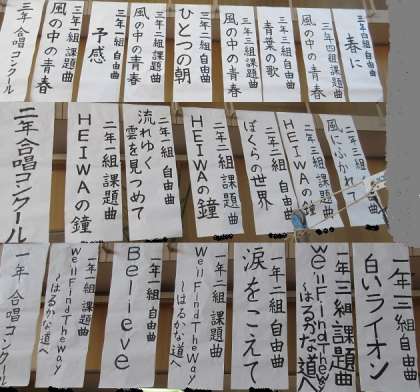 三年 合唱コンクール
三年一組 課題曲
風の中の青春
三年一組 自由曲
予感
三年二組 課題曲
風の中の青春
三年二組 自由曲
ひとつの朝
三年三組 課題曲
風の中の青春
三年三組 自由曲
青葉の歌
三年四組 課題曲
風の中の青春
三年四組 自由曲
春に
二年 合唱コンクール
二年一組 課題曲
HEIWAの鐘
二年一組 自由曲
流れゆく
雲を見つめて
二年二組 課題曲
HEIWAの鐘
二年二組 自由曲
ぼくらの世界
二年三組 課題曲
HEIWAの鐘
二年三組 自由曲
風にふかれ
一年 合唱コンクール
一年一組 課題曲
We'll Find The Way
〜はるかな道へ
一年一組 自由曲
Believe
一年二組 課題曲
We'll Find The Way
〜はるかな道へ
一年二組 自由曲
涙をこえて
一年三組 課題曲
We'll Find The Way
〜はるかな道へ
一年三組 自由曲
白いライオン